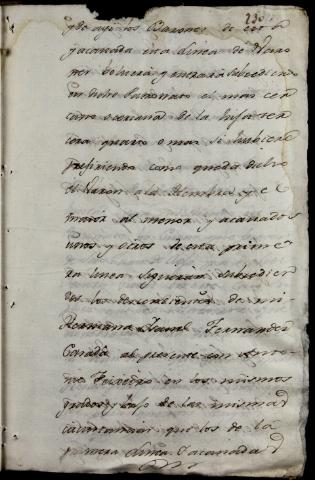 230
yido aqui los Varones de esta
y acavada esta Linea de Varo
nes bolvera y entrara subcediendo
en dicho Patronato el mas cer
cano o cercana de la hija ter
cera quarta o mas si hubiere
prefiriendo como queda dicho
el Varon a la Hembra y el
maior al menor y acavados
unos y otros de esta prime
ra linea seguiran subcedien
do los descendientes de mi
Hermana Ysavel Fernandez
Canada al presente en Anto
nio Feixoto en los mismos
grados y bajo de las mismas
circunstancias que los de la
primera Linea Y acavada